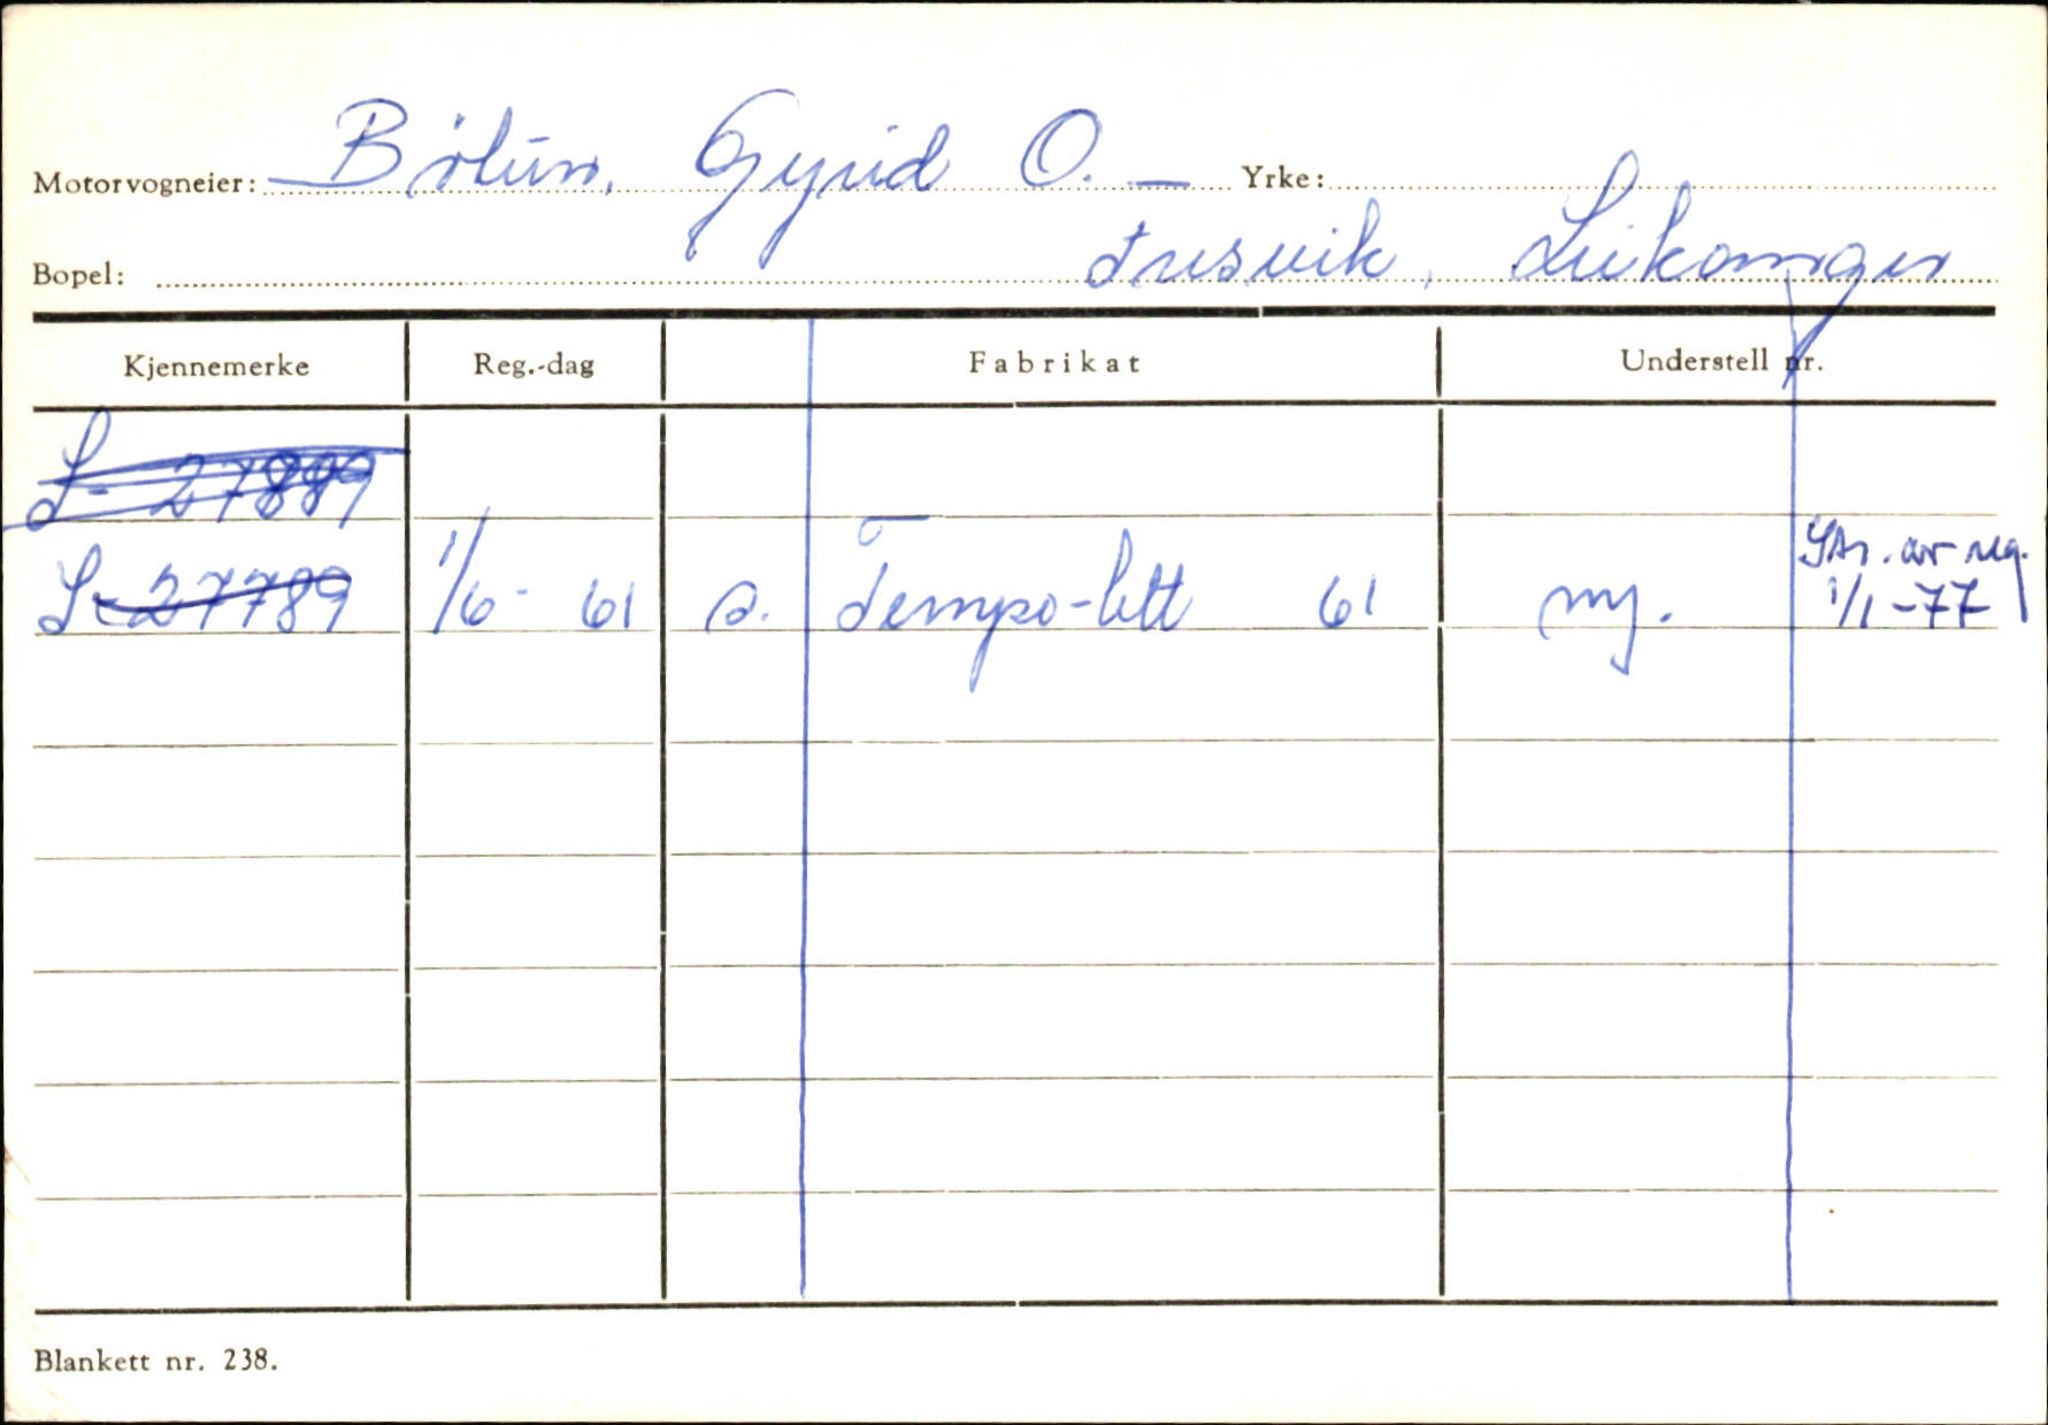 Motorvogneier: Bölum, Gyrid O. — Yrke:
Bopel: Fresvik, Leikanger
Kjennemerke Reg.-dag Fabrikat Understell nr.
S- 27889
S-27789 1/6- 61 s. Tempo-lett 61 ny. Str. av reg.
1/1-77
Blankett nr. 238.